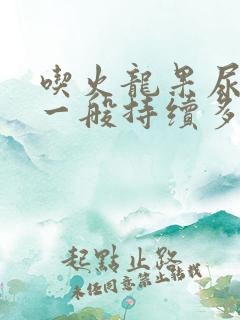 喫火龍果尿
一般持續多
起點止路
未任同意禁止轉載